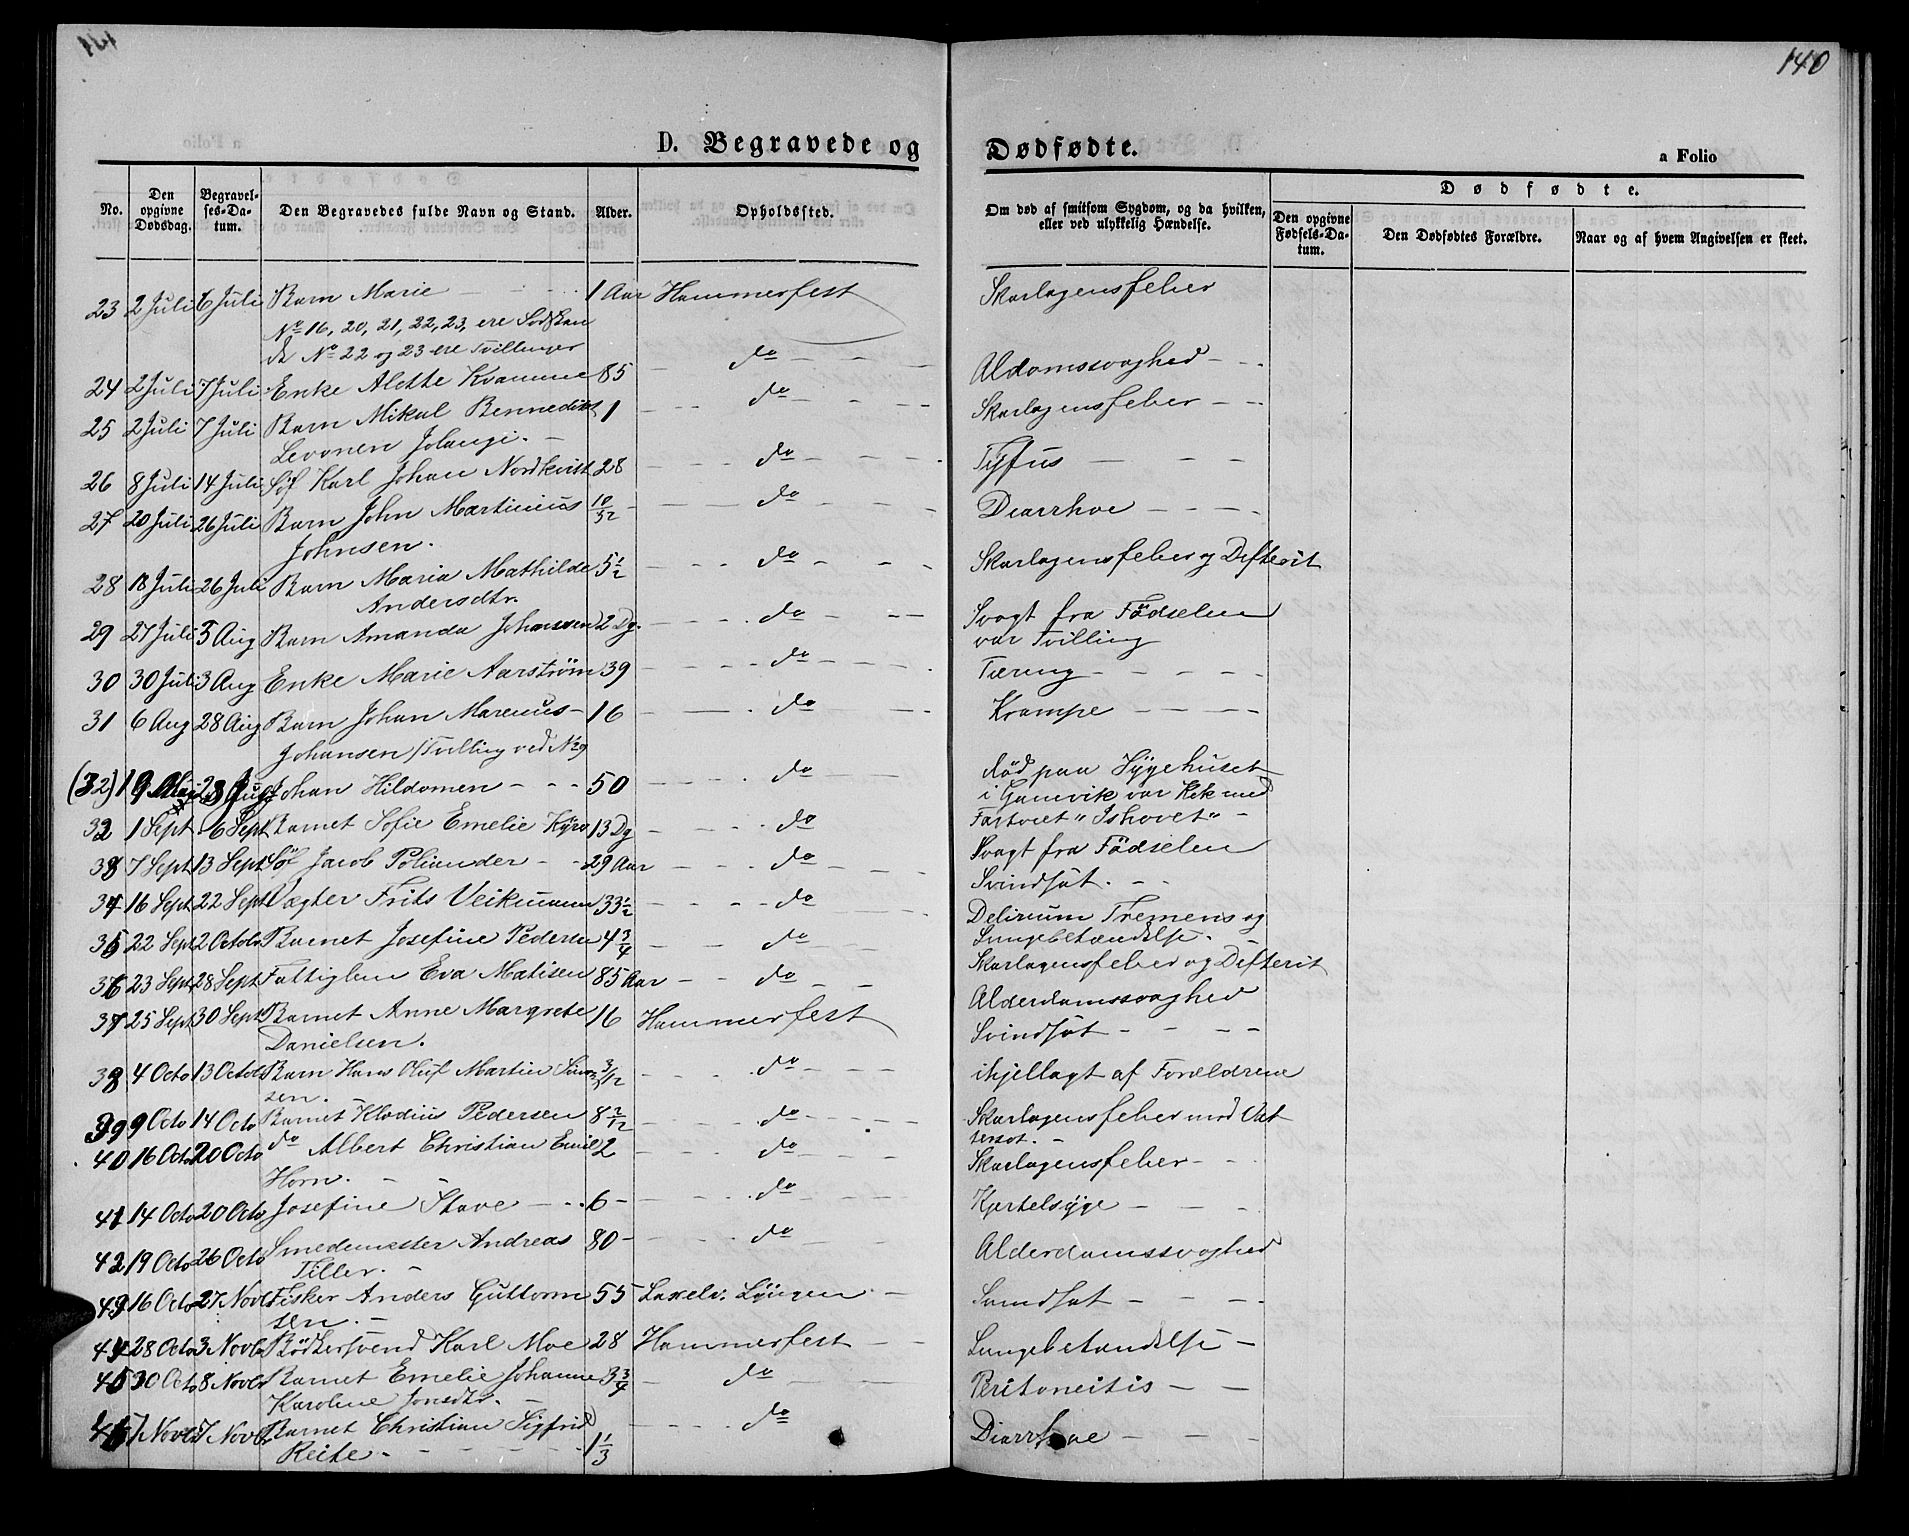 140
D. Begravede og Dødfødte.
a Folio
No.
Den opgivne Dødsdag.
Begravelses-Datum.
Den Begravedes fulde Navn og Stand.
Alder.
Opholdssted.
Om død af smitsom Sygdom, og da hvilken, eller ved ulykkelig Hændelse.
Dødfødte.
Den opgivne Fødsels-Datum.
Den Dødfødtes Forældre.
Naar og af hvem Angivelsen er skeet.
23 2 Juli 6 Juli Barn Marie 1 Aar Hammerfest Skarlagensfeber
No 16, 20, 21, 22, 23, ere Södskan
de No 22 og 23 ere Tvillinger
24 2 Juli 7 Juli Enke Alette Kvamme 85 do Aldomssvaghed
25 2 Juli 7 Juli Barn Mikal Bennedikt 1 do Skarlagensfeber
Levonen Jolangi.
26 8 Juli 14 Juli Söf Karl Johan Nordkvist 28 do Tyfus
27 20 Juli 26 Juli Barn John Martinius 10/52 do Diarrhoe
Johnsen.
28 18 Juli 26 Juli Barn Maria Mathilde 5 1/2 do Skarlagensfeber og Difterit
Andersdtr.
29 27 Juli 3 Aug Barn Amanda Johansen 2 Dg. do Svagt fra Födselen
var Tvilling
30 30 Juli 3 Aug Enke Marie Aarström 39 do Tæring
31 6 Aug 28 Aug Barn Johan Marenus 16 do Krampe
Johansen /Tvilling ved No 29
(32) 19 Mai 23 Aug Johan Hildomen 50 do död paa Sygehuset
i Gamvik var Kok med
Fartöiet "Ishovet"
32 1 Sept 6 Sept Barnet Sofie Emelie Kyrö 13 Dg do Svagt fra Födselen
33 7 Sept 13 Sept Söf Jacob Poliander 29 Aar do Svindsöt.
34 16 Sept 22 Sept Vægter Frits Veikumen 33 1/2 do Delirium Tremens og
Lungebetændelse.
35 22 Sept 2 Octob Barnet Josefine Pedersen 4 3/4 do Skarlagensfeber og Difterit
36 23 Sept 28 Sept Fattiglem Eva Matisen 85 Aar do Alderdomssvaghed
37 25 Sept 30 Sept Barnet Anne Margrete 16 Hammerfest Svindsöt
Danielsen.
38 4 Octo 13 Octob Barn Hans Oluf Martin Simon 3/12 do ihjellagt af Forældrene
sen.
39 9 Octo 14 Octo Barnet Klodius Pedersen 8 2/12 do Skarlagensfeber med Vat
tersot.
40 16 Octo 20 Octo do Albert Christian Emil 2 do Skarlagensfeber
Horn.
41 14 Octo 20 Octo Josefine Stave 6 do Kjertelsyge
42 19 Octo 26 Octo Smedemester Andreas 80 do Alderdomssvaghed
Tiller.
43 16 Octo 27 Novb Fisker Anders Guttorm 55 Laxelv. Lyngen Svindsöt
sen.
44 28 Octo 3 Novb Bödkersvend Karl Moe 28 Hammerfest Lungebetændelse
45 30 Octo 8 Novb Barnet Emelie Johanne 3 3/4 do Peritoneitis
Karoline Jonsdtr.
46 1 Novb 7 Novb Barnet Christian Sigfrid 1 1/3 do Diarrhoe
Reite.